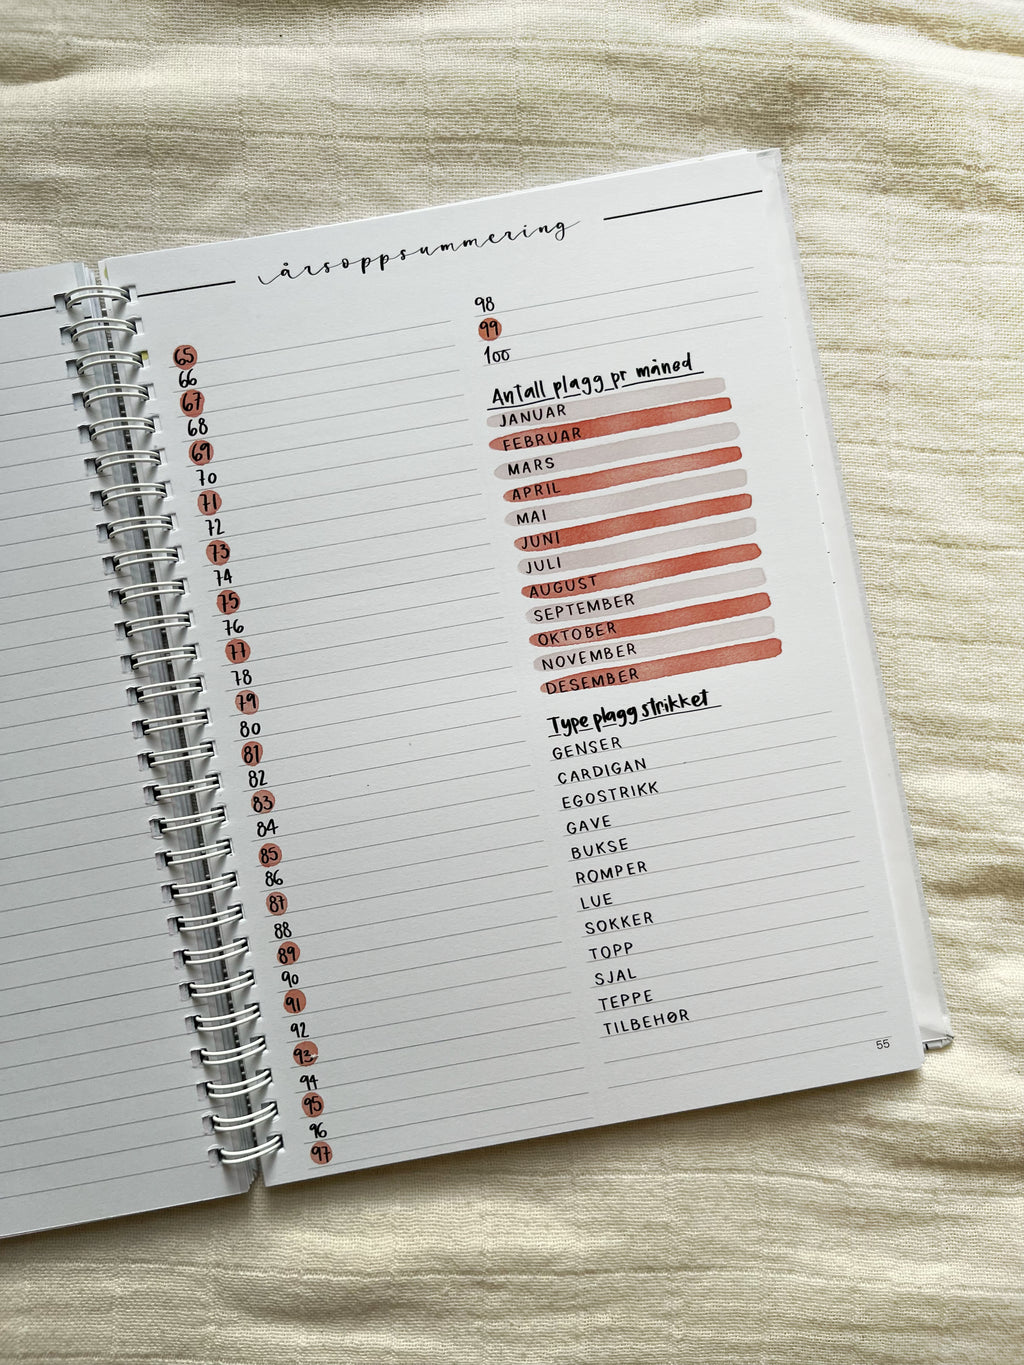 årsoppsummering
65
66
67
68
69
70
71
72
73
74
75
76
77
78
79
80
81
82
83
84
85
86
87
88
89
90
91
92
93
94
95
96
97
98
99
100
Antall plagg pr måned
JANUAR
FEBRUAR
MARS
APRIL
MAI
JUNI
JULI
AUGUST
SEPTEMBER
OKTOBER
NOVEMBER
DESEMBER
Type plagg strikket
GENSER
CARDIGAN
EGOSTRIKK
GAVE
BUKSE
ROMPER
LUE
SOKKER
TOPP
SJAL
TEPPE
TILBEHØR
55